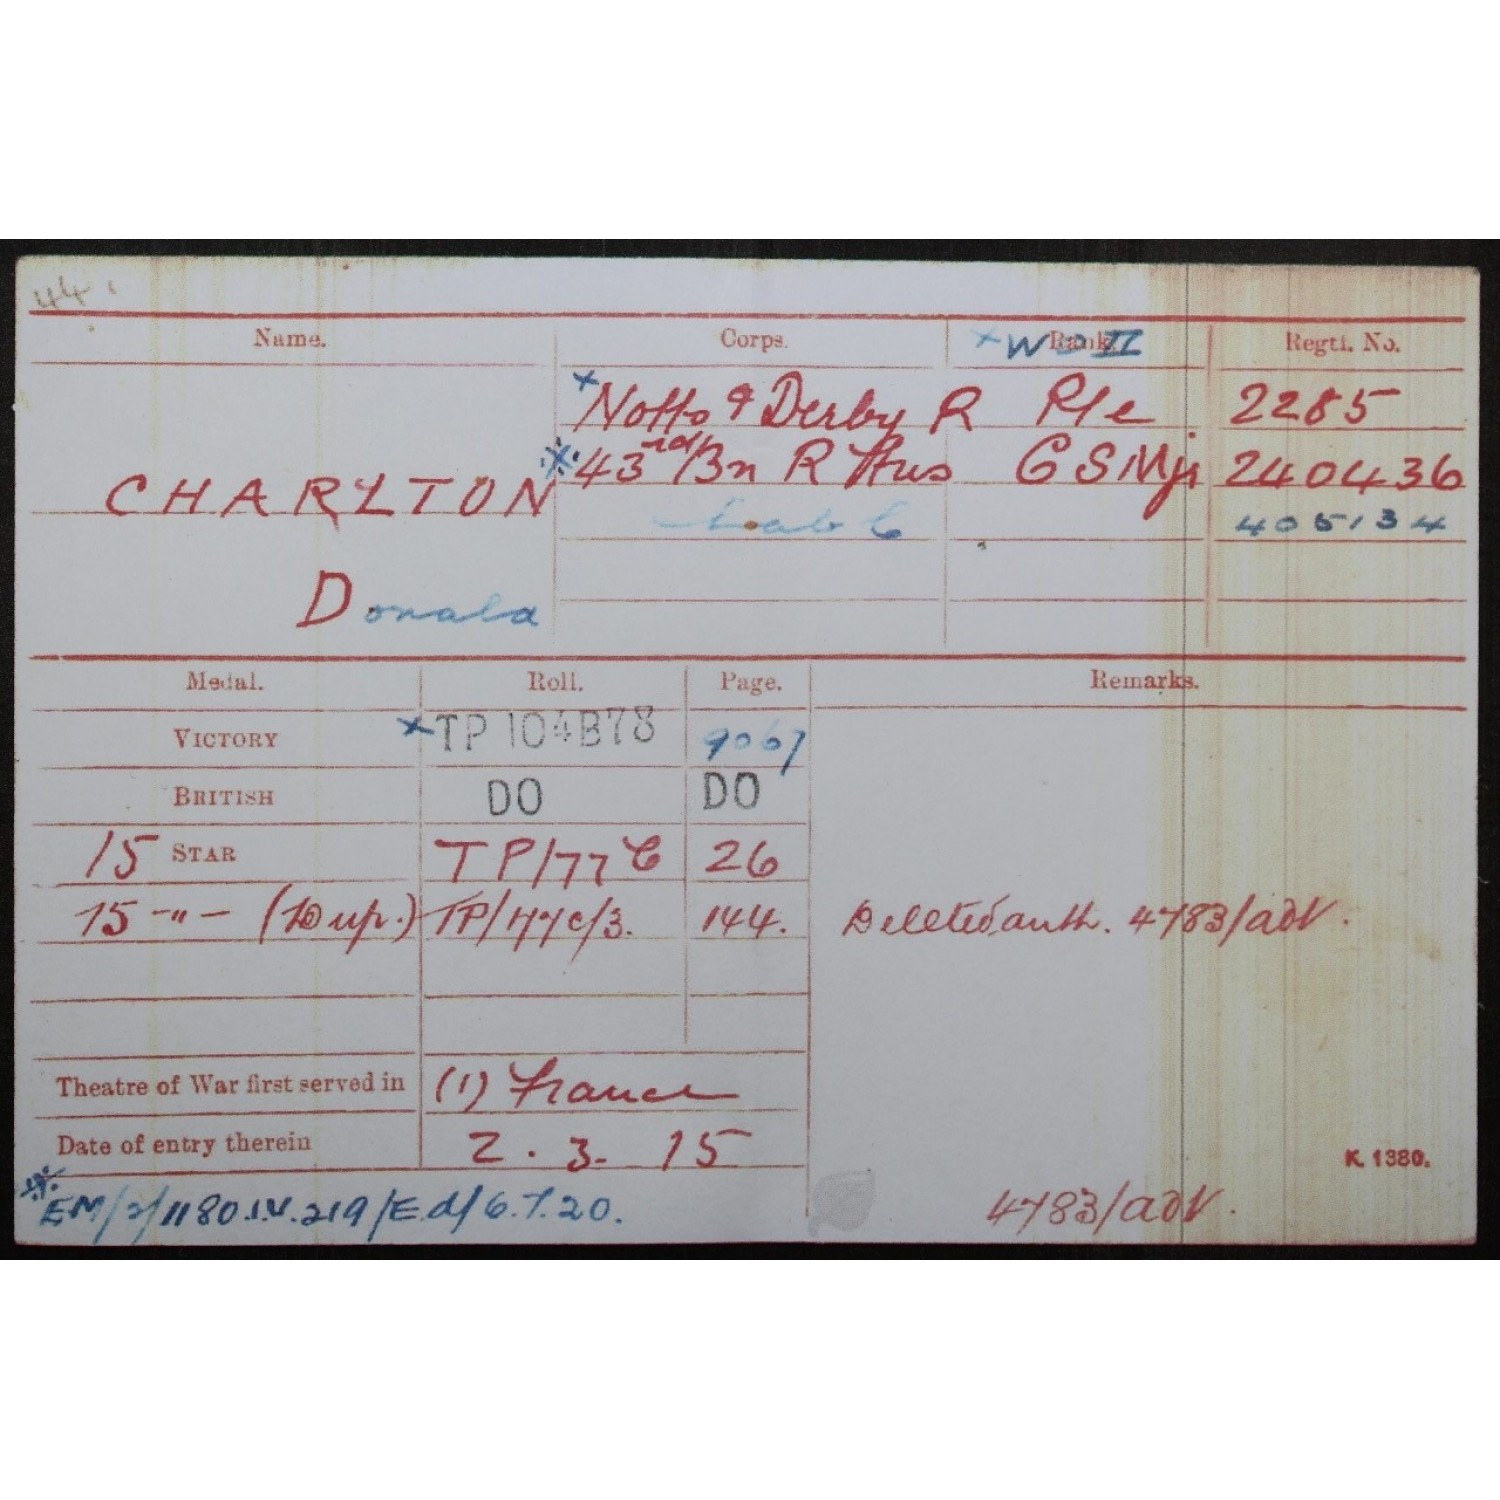 44.
Name. Corps. Rank. Regtl. No.
× W O II
× Notts & Derby R Pte 2285
CHARLTON 43rd/Bn R Fus CSMjr 240436
Lab C 405134
Donald
Medal. Roll. Page. Remarks.
VICTORY × TP 104B78 9067
BRITISH DO DO
15 STAR TP/77C 26
15 -"- (Dup.) TP/77C/3. 144. Deleted auth. 4783/adv.
Theatre of War first served in (1) France
Date of entry therein 2.3.15
K. 1380.
EM/2/1180.IV.219/Ed/6.7.20.
4783/adv.